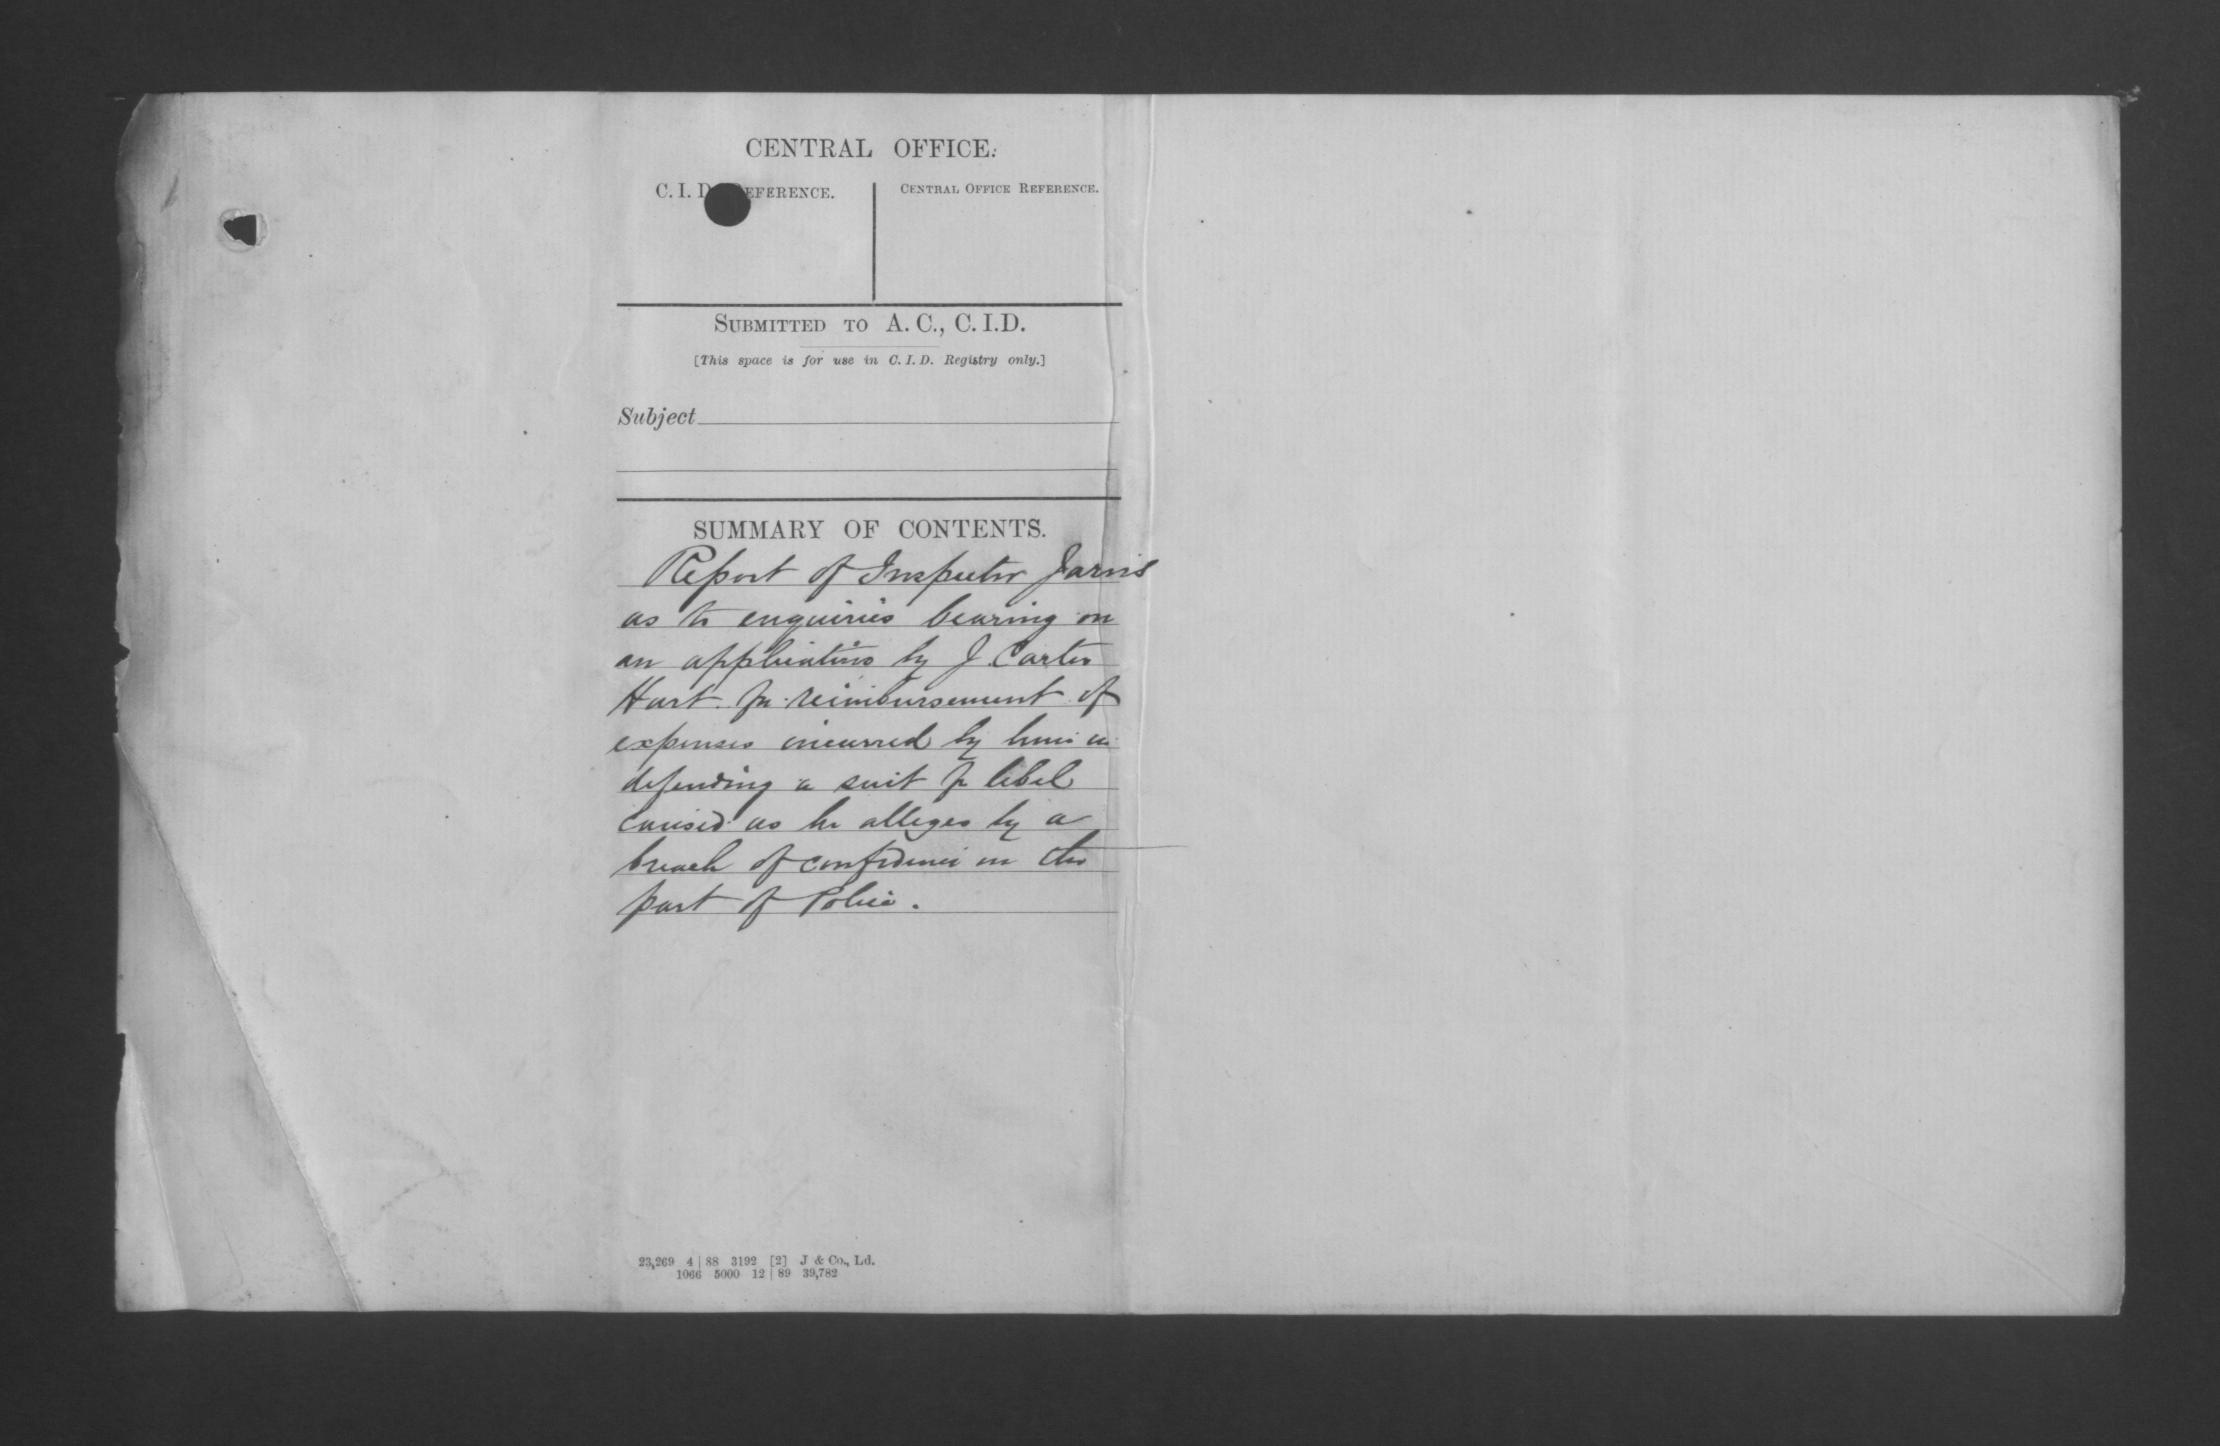 CENTRAL OFFICE.
C. I. D. REFERENCE.
CENTRAL OFFICE REFERENCE.
SUBMITTED TO A. C., C. I. D.
[This space is for use in C. I. D. Registry only.]
Subject
SUMMARY OF CONTENTS.
Report of Inspector Jarvis
as to enquiries bearing on
an application by J. Carter
Hart for reimbursement of
expenses incurred by him in
defending a suit for libel
caused as he alleges by a
breach of confidence on the
part of Police.
23,269 4 | 88 3192 [2] J & Co., Ld.
1066 5000 12 | 89 39,782